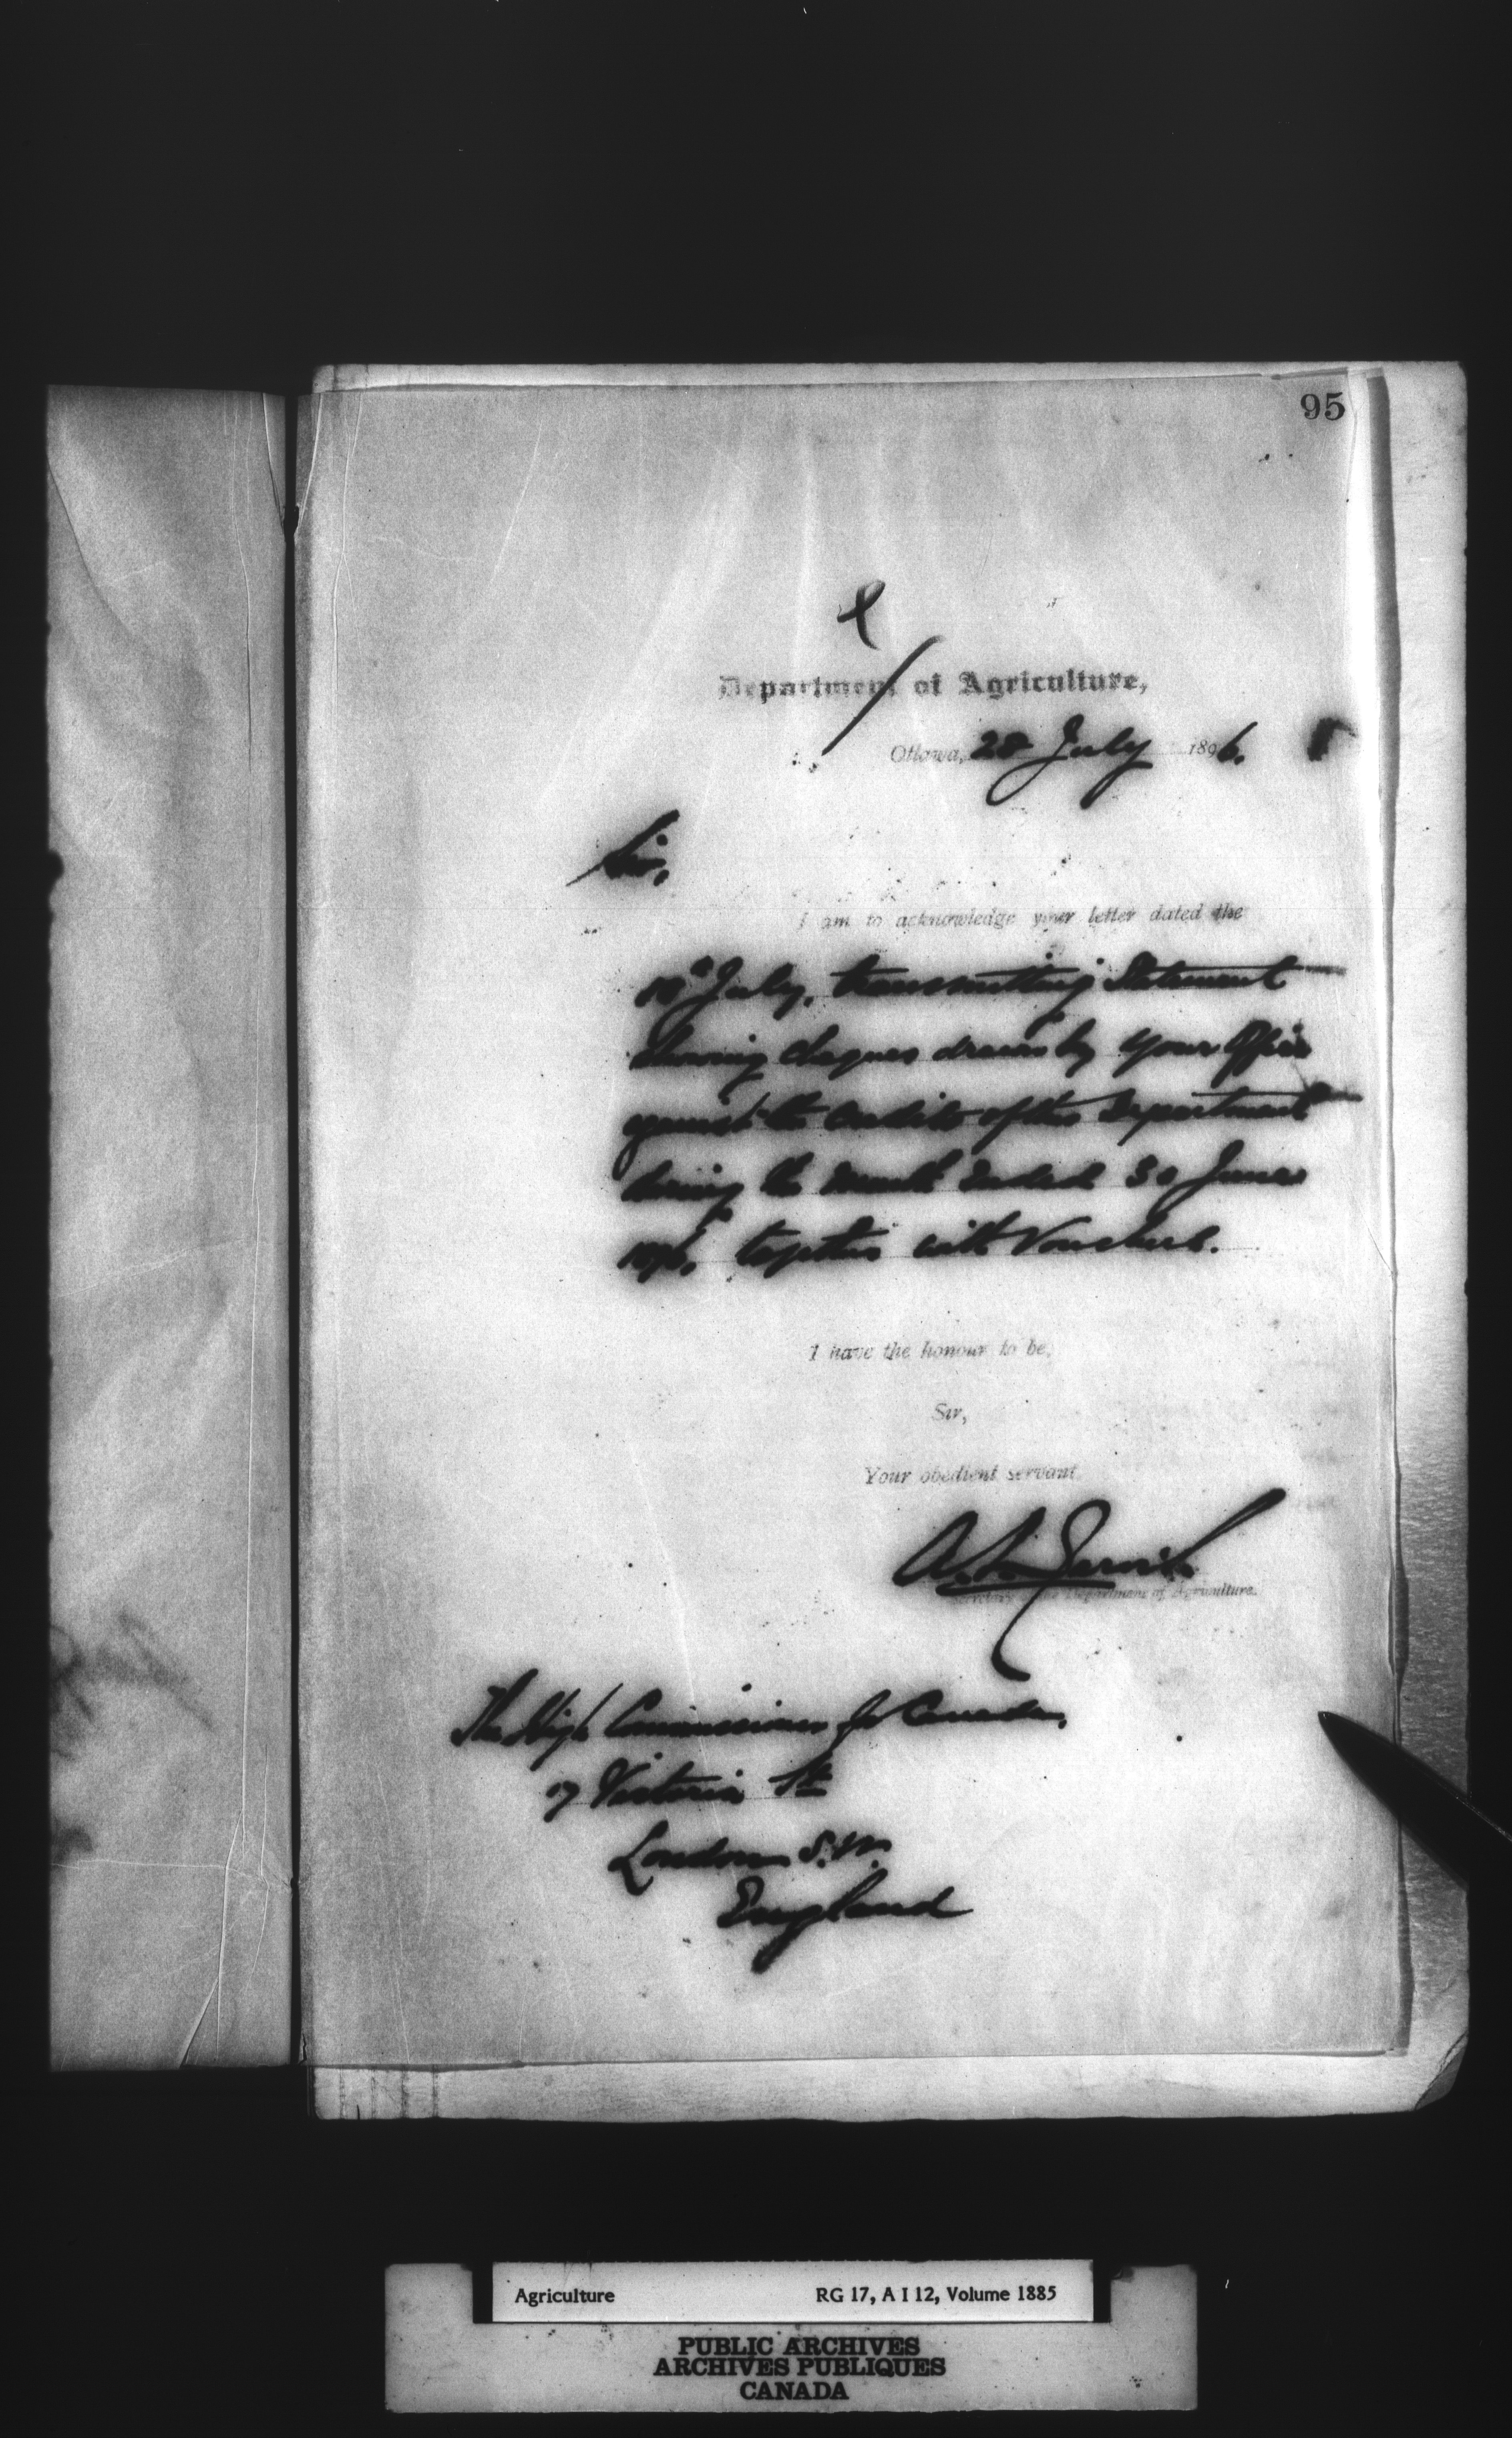 95
Department of Agriculture,
Ottawa, 28 July 1896.
Sir,
I am to acknowledge your letter dated the
July, transmitting Statement
showing cheques drawn by your Office
against the Credits of this Department
during the month ended 30 June
1896, together with Vouchers.
I have the honour to be,
Sir,
Your obedient servant
A. L. Jarvis
Secretary of the Department of Agriculture.
The High Commissioner for Canada,
17 Victoria St
London S.W.
England
Agriculture RG 17, A I 12, Volume 1885
PUBLIC ARCHIVES
ARCHIVES PUBLIQUES
CANADA